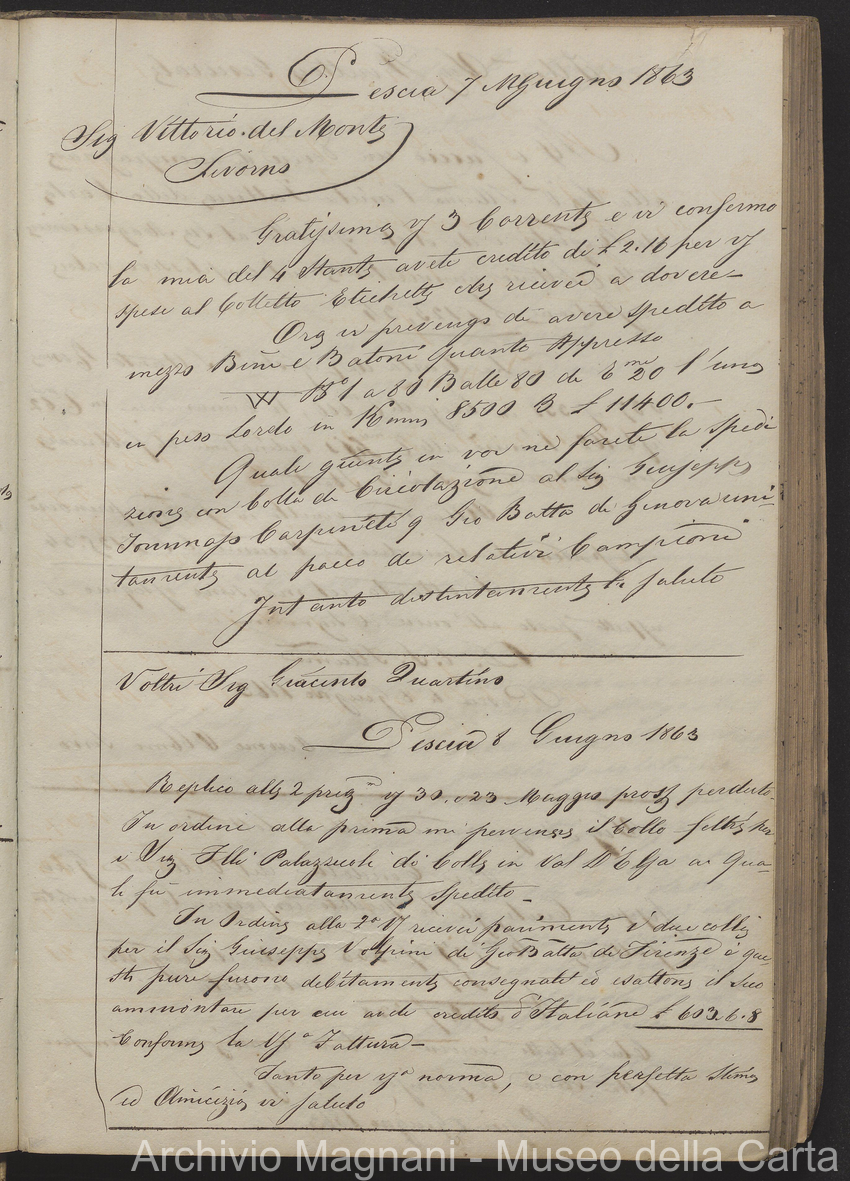 Pescia 7 Giugno 1863
Sig Vittorio del Monte
Livorno
Gratissima V 3 Corrente e vi confermo
la mia del 4 Stante avete credito di £ 2.16 per V
spese al Colletto Etichette che riceveì a dovere
Ora vi prevengo di avere spedito a
mezzo Bini e Batoni quanto Appresso
VV N° 1 a 80 Balle 80 di 20 l'una
in peso Lordo in 8500 £ 11400.-
Quali giunte in voi ne farete la spedi
zione con bolla di Circolazione al Sig Giuseppe
Tommaso Carpineti q Gio Batta di Genova uni-
tamente al pacco de relativi Campioni
Intanto distintamente Vi saluto
Voltri Sig Giacinto Quartino
Pescia 8 Giugno 1863
Replico alle 2 preg.e V 30. e 23 Maggio pross perduto
In ordine alla prima mi pervenne il Collo feltri per
i Sig Flli Palazzuoli di Colle in Val D'Elsa ai Qua-
li fù immediatamente spedito -
In Ordine alla 2a V ricevei parimente i due colli
per il Sig Giuseppe Volpini di GioBatta di Firenze e que-
sti pure furono debitamente consegnati ed esattone il suo
ammontare per cui avete credito d'Italiane £ 603.6.8
Conforme la V.a Fattura -
Tanto per V.a norma, e con perfetta stima
ed Amicizia vi saluto
Archivio Magnani - Museo della Carta